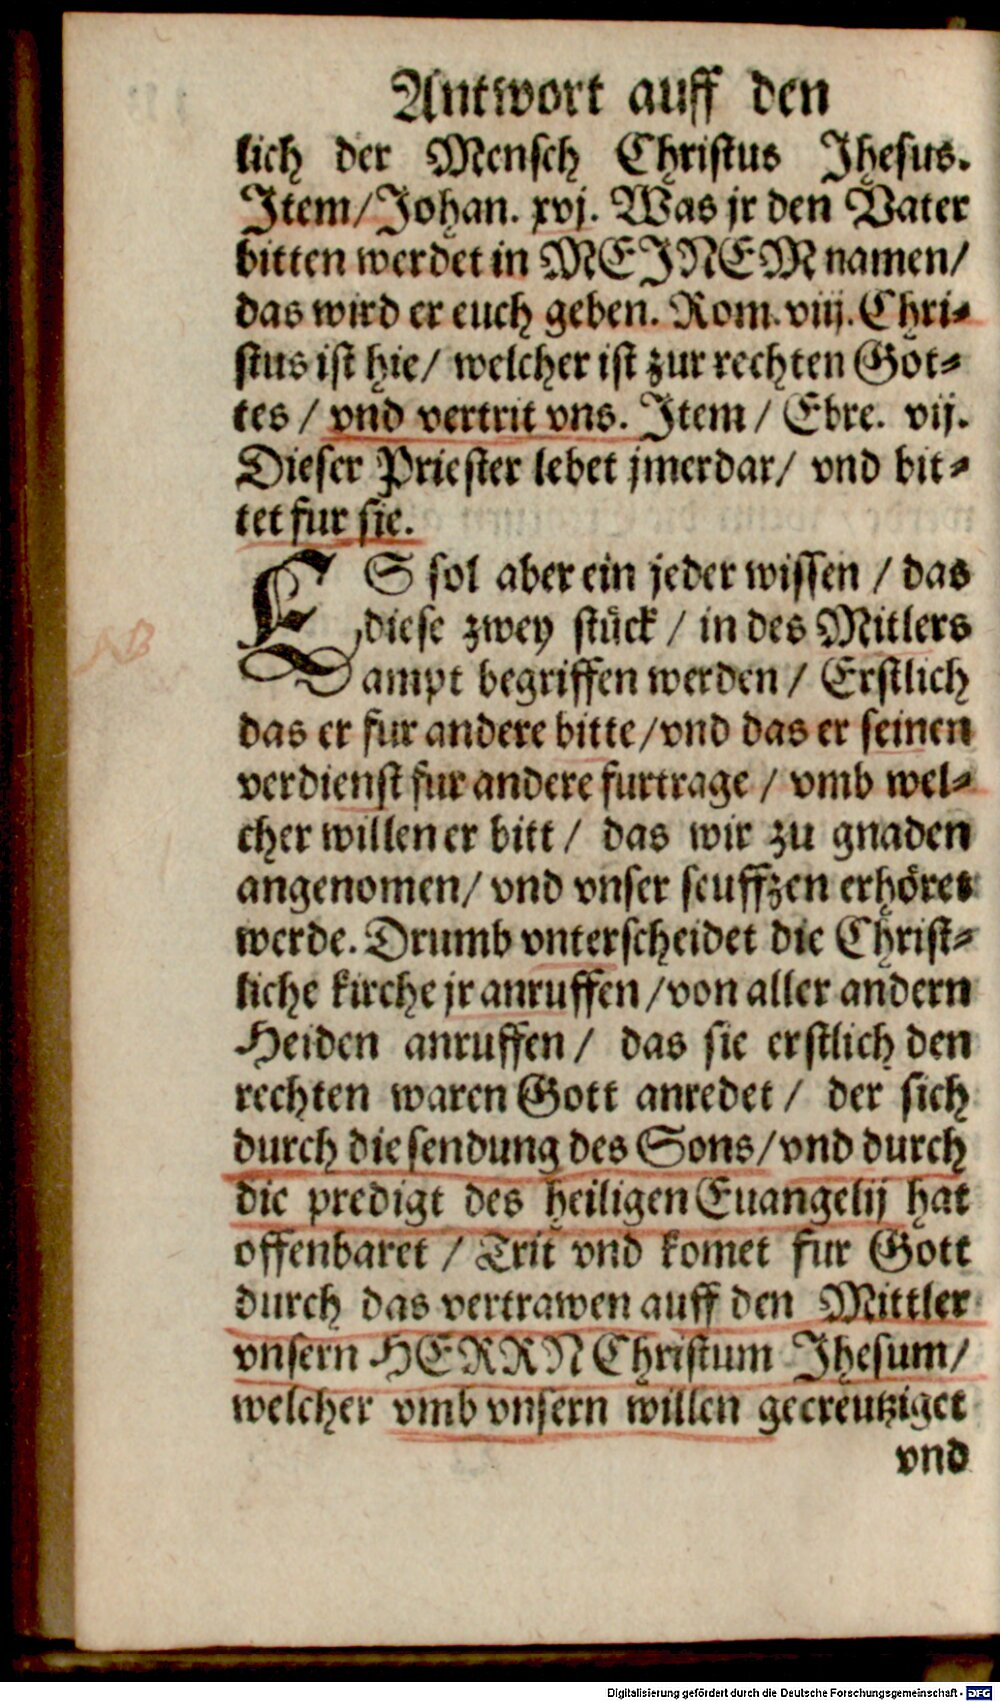 Antwort auff den
lich der Mensch Christus Jhesus.
Item/Johan. xvj. Was jr den Vater
bitten werdet in MEJNEM namen/
das wird er euch geben. Rom. viij. Chri⸗
stus ist hie/ welcher ist zur rechten Got⸗
tes / vnd vertrit vns. Item / Ebre. vij.
Dieser Priester lebet jmerdar/ vnd bit⸗
tet fur sie.
ES sol aber ein jeder wissen / das
diese zwey stück / in des Mitlers
ampt begriffen werden / Erstlich
das er fur andere bitte/vnd das er seinen
verdienst fur andere furtrage / vmb wel⸗
cher willen er bitt / das wir zu gnaden
angenomen/ vnd vnser seuffzen erhöret
werde. Drumb vnterscheidet die Christ⸗
liche kirche jr anruffen /von aller andern
Heiden anruffen / das sie erstlich den
rechten waren Gott anredet / der sich
durch die sendung des Sons/vnd durch
die predigt des heiligen Euangelij hat
offenbaret / Trit vnd komet fur Gott
durch das vertrawen auff den Mittler
vnsern HERRN Christum Jhesum/
welcher vmb vnsern willen gecreutziget
vnd
NB
Digitalisierung gefördert durch die Deutsche Forschungsgemeinschaft - DFG